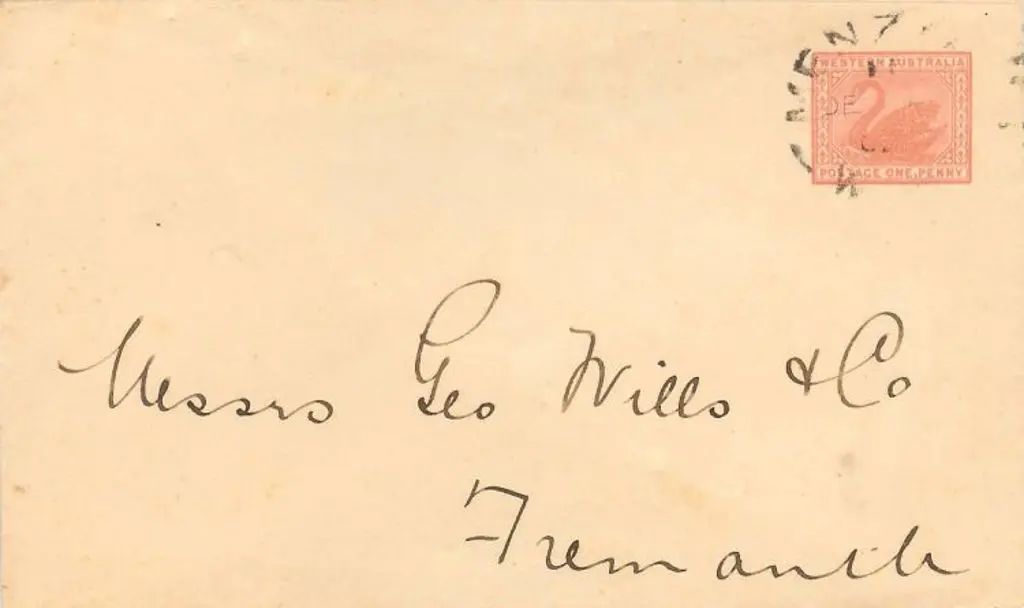 WESTERN AUSTRALIA
POSTAGE ONE PENNY
Messrs Geo Wills & Co
Fremantle